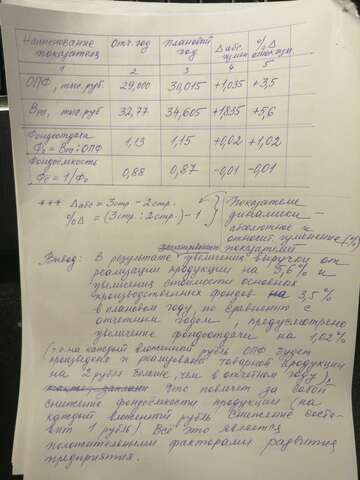 Наименование показателя | Отч. год | Плановый год | Δ абс. | % Δ
1 | 2 | 3 | 4 | 5
ОПФ, тыс. руб. | 29,000 | 30,015 | +1,035 | +3,5
Врп, тыс. руб | 32,77 | 34,605 | +1,835 | +5,6
Фондоотдача Фо = Врп : ОПФ | 1,13 | 1,15 | +0,02 | +1,02
Фондоёмкость Фе = 1/Фо | 0,88 | 0,87 | -0,01 | -0,01
*** Δабс = 3стр - 2стр.
%Δ = (3стр : 2стр.) - 1
Показатели
динамики -
абсолютное и
относит. изменение (%)
показателей
Вывод: В результате увеличения выручки от
реализации продукции на 5,6% и
увеличения стоимости основных
производственных фондов на 3,5%
в плановом году, по сравнению с
отчетным годом, предусмотрено
увеличение фондоотдачи на 1,02%
(т.е. на каждый вложенный рубль ОПФ будет
произведено и реализовано товарной продукции
на 2 рубля больше, чем в отчетном году).
Это повлечет за собой
снижение фондоёмкости продукции (на
каждый вложенный рубль снижение соста-
вит 1 рубль). Всё это является
положительными факторами развития
предприятия.